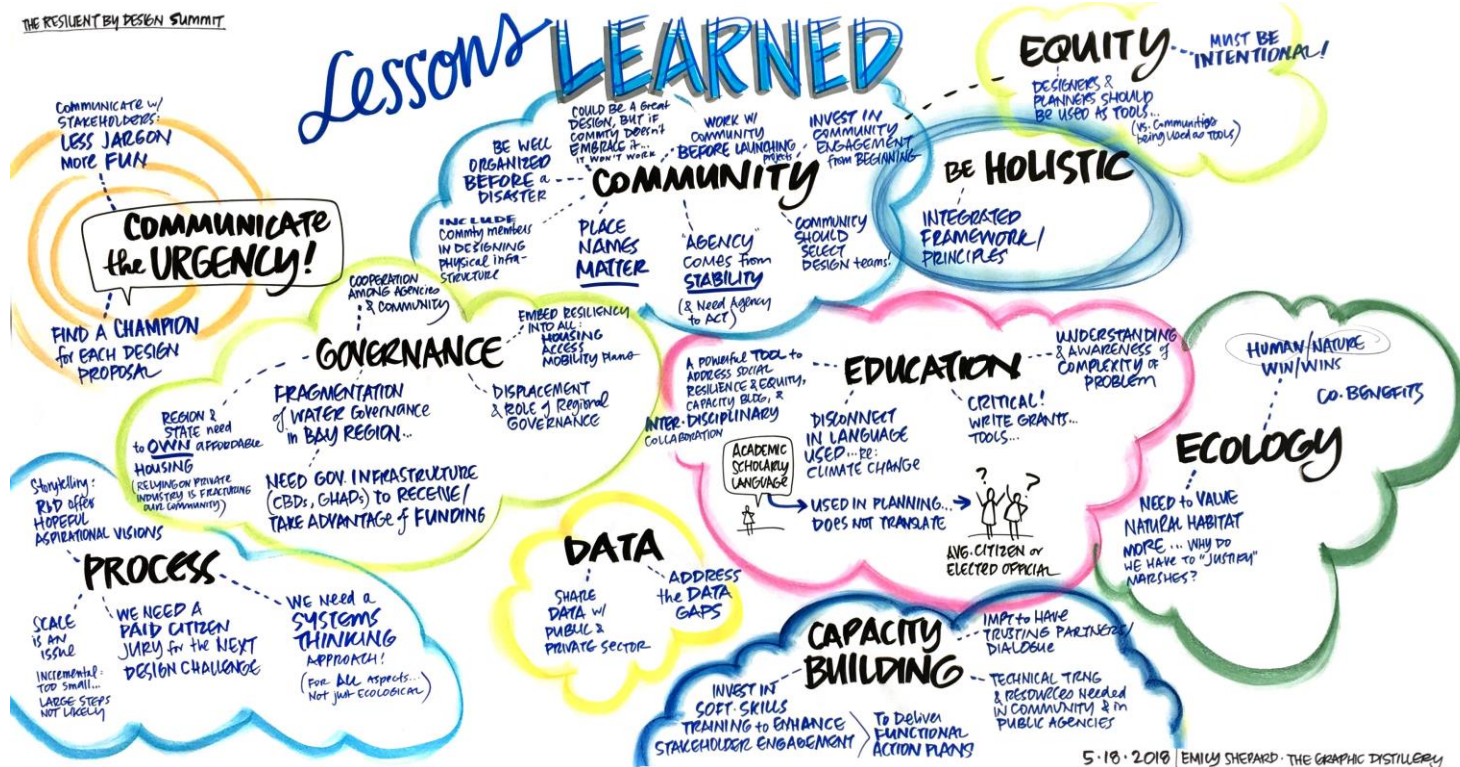 THE RESILIENT BY DESIGN SUMMIT
Lessons LEARNED
COMMUNICATE W/
STAKEHOLDERS:
LESS JARGON
MORE FUN
COMMUNICATE
the URGENCY!
FIND A CHAMPION
for EACH DESIGN
PROPOSAL
COMMUNITY
BE WELL
ORGANIZED
BEFORE a
DISASTER
COULD BE A Great
DESIGN, BUT if
COMMTY DOESN'T
EMBRACE it...
IT WON'T WORK
WORK W/
COMMUNITY
BEFORE LAUNCHING
projects
INVEST IN
COMMUNITY
ENGAGEMENT
from BEGINNING
INCLUDE
Commty members
IN DESIGNING
PHYSICAL INFRA-
STRUCTURE
PLACE
NAMES
MATTER
"AGENCY"
COMES from
STABILITY
(& Need Agency
to ACT)
COMMUNITY
SHOULD
SELECT
DESIGN teams!
EQUITY
MUST BE
INTENTIONAL!
DESIGNERS &
PLANNERS SHOULD
BE USED AS TOOLS...
(vs. Communities
being used as TOOLS)
BE HOLISTIC
INTEGRATED
FRAMEWORK/
PRINCIPLES
GOVERNANCE
COOPERATION
AMONG Agencies
& COMMUNITY
EMBED RESILIENCY
INTO ALL:
HOUSING
ACCESS
MOBILITY Plans
REGION &
STATE need
to OWN affordable
HOUSING
(RELYING ON PRIVATE
INDUSTRY IS FRACTURING
OUR COMMUNITY)
FRAGMENTATION
of WATER GOVERNANCE
in BAY REGION...
DISPLACEMENT
& ROLE of Regional
GOVERNANCE
NEED GOV. INFRASTRUCTURE
(CBDs, GHADs) to RECEIVE/
TAKE ADVANTAGE of FUNDING
EDUCATION
A POWERFUL TOOL to
ADDRESS SOCIAL
RESILIENCE & EQUITY,
CAPACITY BLDG, &
INTER-DISCIPLINARY
COLLABORATION
UNDERSTANDING
& AWARENESS of
COMPLEXITY of
PROBLEM
DISCONNECT
IN LANGUAGE
USED... RE:
CLIMATE CHANGE
CRITICAL!
WRITE GRANTS...
TOOLS...
ACADEMIC
SCHOLARLY
LANGUAGE
USED IN PLANNING...
DOES NOT TRANSLATE
? ?
AVG. CITIZEN or
ELECTED OFFICIAL
ECOLOGY
HUMAN/NATURE
WIN/WINS
CO-BENEFITS
NEED to VALUE
NATURAL HABITAT
MORE... WHY DO
WE HAVE TO "JUSTIFY"
MARSHES?
PROCESS
Storytelling:
RbD offer
HOPEFUL
ASPIRATIONAL VISIONS
SCALE
is AN
ISSUE
Incremental:
TOO SMALL...
LARGE STEPS
NOT LIKELY
WE NEED A
PAID CITIZEN
JURY for the NEXT
DESIGN CHALLENGE
WE Need a
SYSTEMS
THINKING
APPROACH!
(FOR ALL Aspects...
Not just Ecological)
DATA
SHARE
DATA W/
PUBLIC &
PRIVATE SECTOR
ADDRESS
the DATA
GAPS
CAPACITY
BUILDING
IMPT to HAVE
TRUSTING PARTNERS/
DIALOGUE
INVEST IN
SOFT-SKILLS
TRAINING to ENHANCE
STAKEHOLDER ENGAGEMENT
To Deliver
FUNCTIONAL
ACTION PLANS
TECHNICAL TRNG
& RESOURCES Needed
IN COMMUNITY & in
PUBLIC AGENCIES
5·18·2018 | EMILY SHEPARD · THE GRAPHIC DISTILLERY